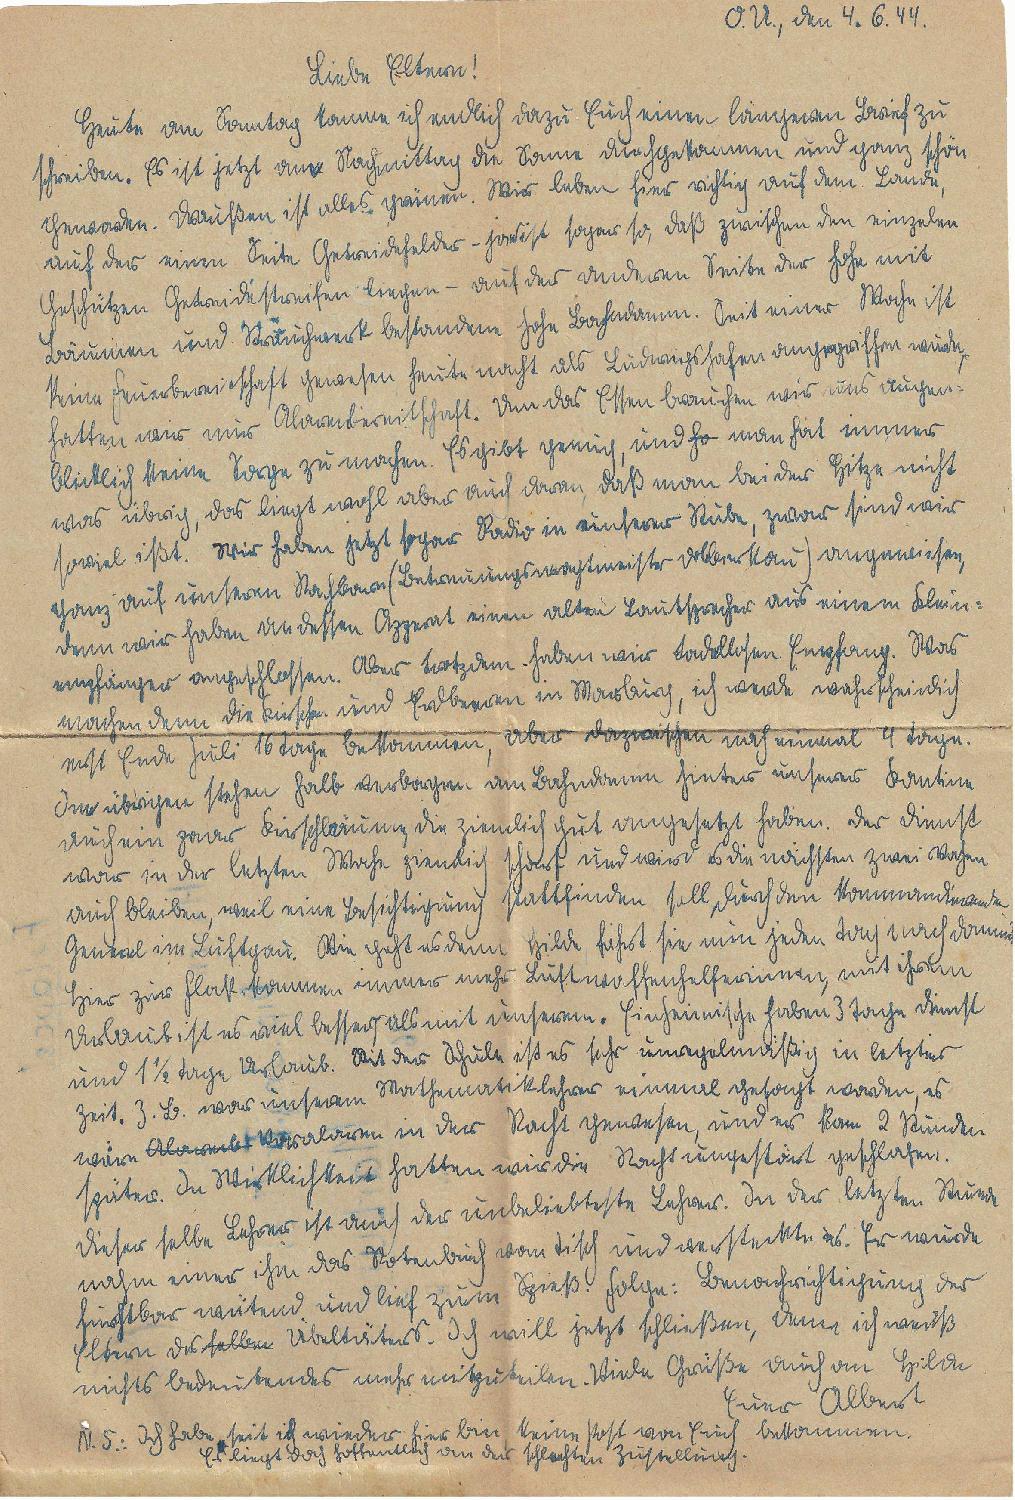 O.U., den 4. 6. 44.
Liebe Eltern!
Heute am Sonntag komme ich endlich dazu Euch einen längeren Brief zu
schreiben. Es ist jetzt am Nachmittag die Sonne durchgekommen und ganz schön
geworden. Draußen ist alles grün. Wir leben hier richtig auf dem Lande,
auf der einen Seite Getreidefelder – ja es ist sogar so, daß zwischen den einzelnen
Geschützen Getreidestreifen liegen – auf der anderen Seite der hohe mit
Bäumen und Strauchwerk bestandene hohe Bahndamm. Seit einer Woche ist
keine Feuerbereitschaft gewesen heute nacht als Ludwigshafen angegriffen wurde,
hatten wir nur Alarmbereitschaft. Um das Essen brauchen wir uns augen=
blicklich keine Sorge zu machen. Es gibt genug, und man hat immer
was übrig, das liegt wohl aber auch daran, daß man bei der Hitze nicht
soviel ißt. Wir haben jetzt sogar Radio in unserer Stube, zwar sind wir
ganz auf unseren Nachbarn (Betreuungswachtmeister) angewiesen,
denn wir haben an dessen Apperat einen alten Lautsprecher aus einem Klein=
empfänger angeschlossen. Aber trotzdem haben wir tadellosen Empfang. Was
machen denn die Kirschen und Erdbeeren in Marburg, ich werde wahrscheinlich
erst Ende Juli 16 Tage bekommen, aber dazwischen noch einmal 4 Tage.
Im übrigen stehen halb verborgen am Bahndamm hinter unserer Kantine
auch ein paar Kirschbäume die ziemlich gut angesetzt haben. Der Dienst
war in der letzten Woche ziemlich scharf und wird es die nächsten zwei Wochen
auch bleiben, weil eine Besichtigung stattfinden soll, durch den Kommandierenden
General im Luftgau. Wie geht es denn Hilde fährt sie nun jeden Tag nach
Hier zur Flak kommen immer mehr Luftwaffenhelferinnen, mit ihrem
Urlaub ist es viel besser als mit unserem. Einheimische haben 3 Tage Dienst
und 1 ½ Tage Urlaub. Mit der Schule ist es sehr unregelmäßig in letzter
Zeit. Z. B. war unserem Mathematiklehrer einmal gesagt worden, es
wäre Voralarm in der Nacht gewesen, und er kam 2 Stunden
später. In Wirklichkeit hatten wir die Nacht ungestört geschlafen.
Dieser selbe Lehrer ist auch der unbeliebteste Lehrer. In der letzten Stunde
nahm einer ihm das Notenbuch vom Tisch und versteckte es. Er wurde
furchtbar wütend und lief zum Spieß! Folge: Benachrichtigung der
Eltern des selben Übeltäters. Ich will jetzt schließen, denn ich weiß
nichts bedeutendes mehr mitzuteilen. Viele Grüße auch an Hilde
Euer Albert
N. S.: Ich habe, seit ich wieder hier bin keine Post von Euch bekommen.
Es liegt doch hoffentlich an der schlechten Zustellung.